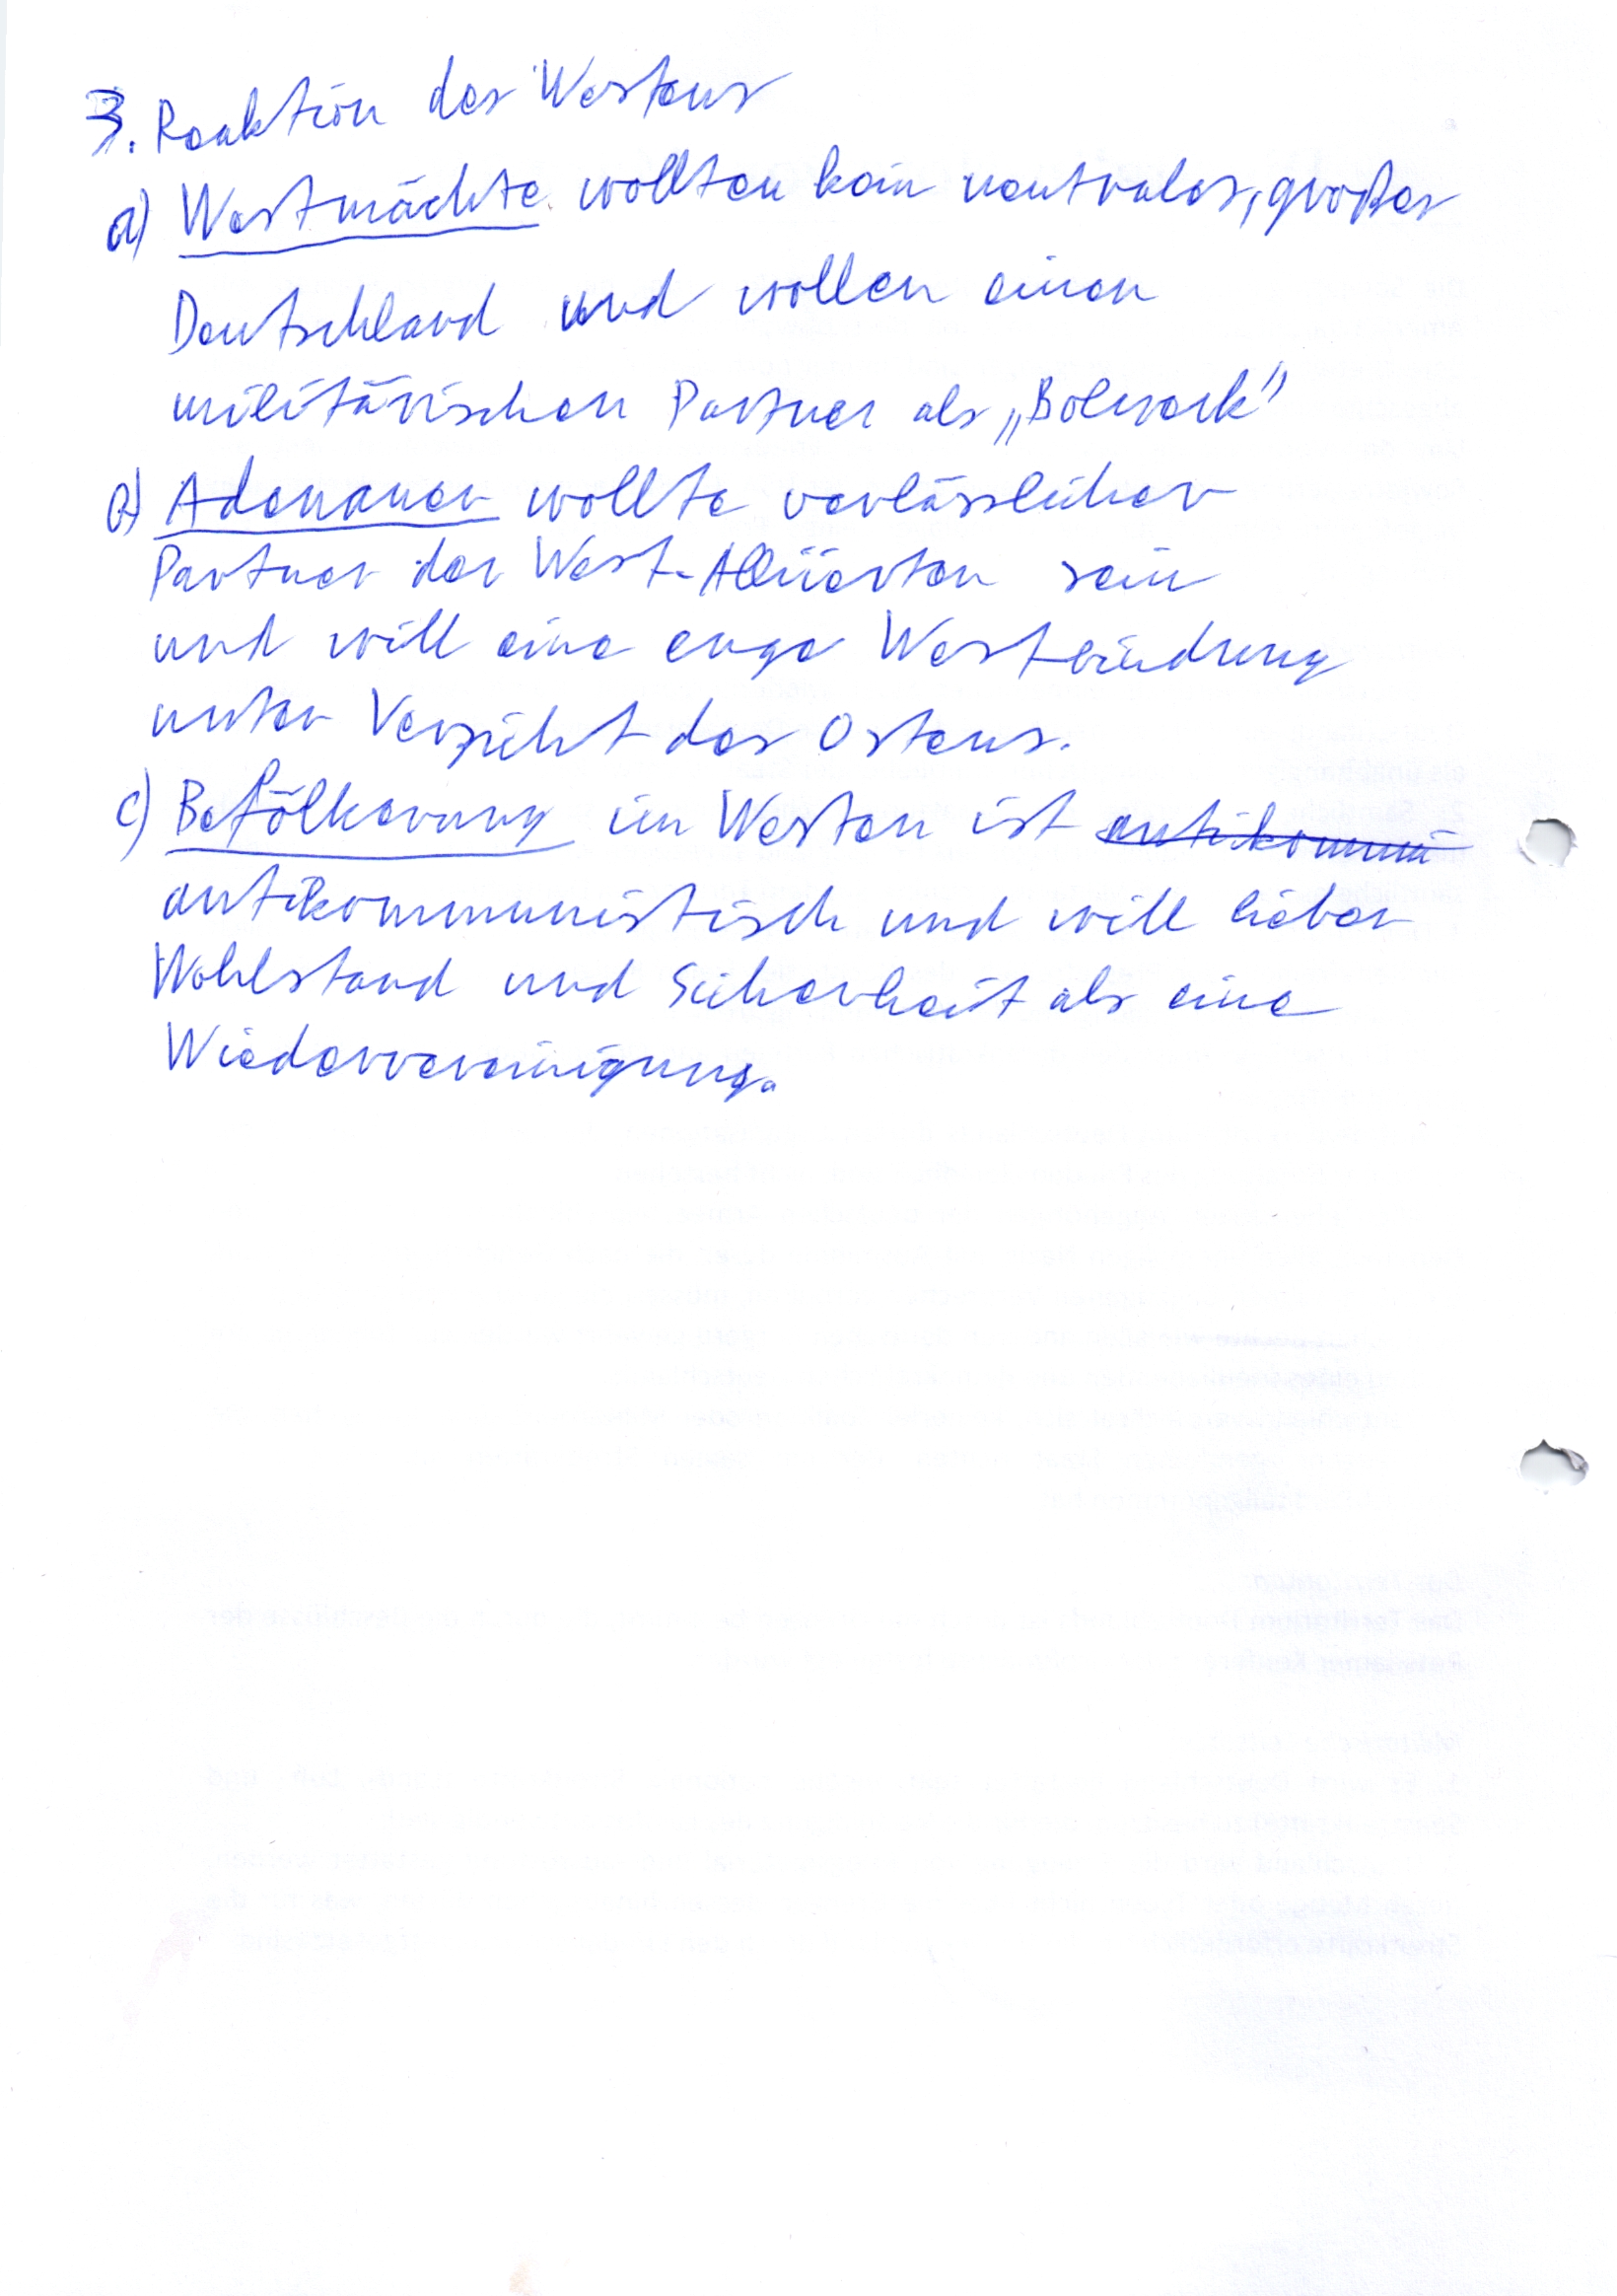 3. Reaktion des Westens
a) Westmächte wollten kein neutrales, großes
Deutschland und wollen einen
militärischen Partner als „Bolwerk"
b) Adenauer wollte verlässlicher
Partner der West-Alliierten sein
und will eine enge Westbindung
unter Verzicht des Ostens.
c) Befölkerung im Westen ist antikommu
antikommunistisch und will lieber
Wohlstand und Sicherheit als eine
Wiedervereinigung.